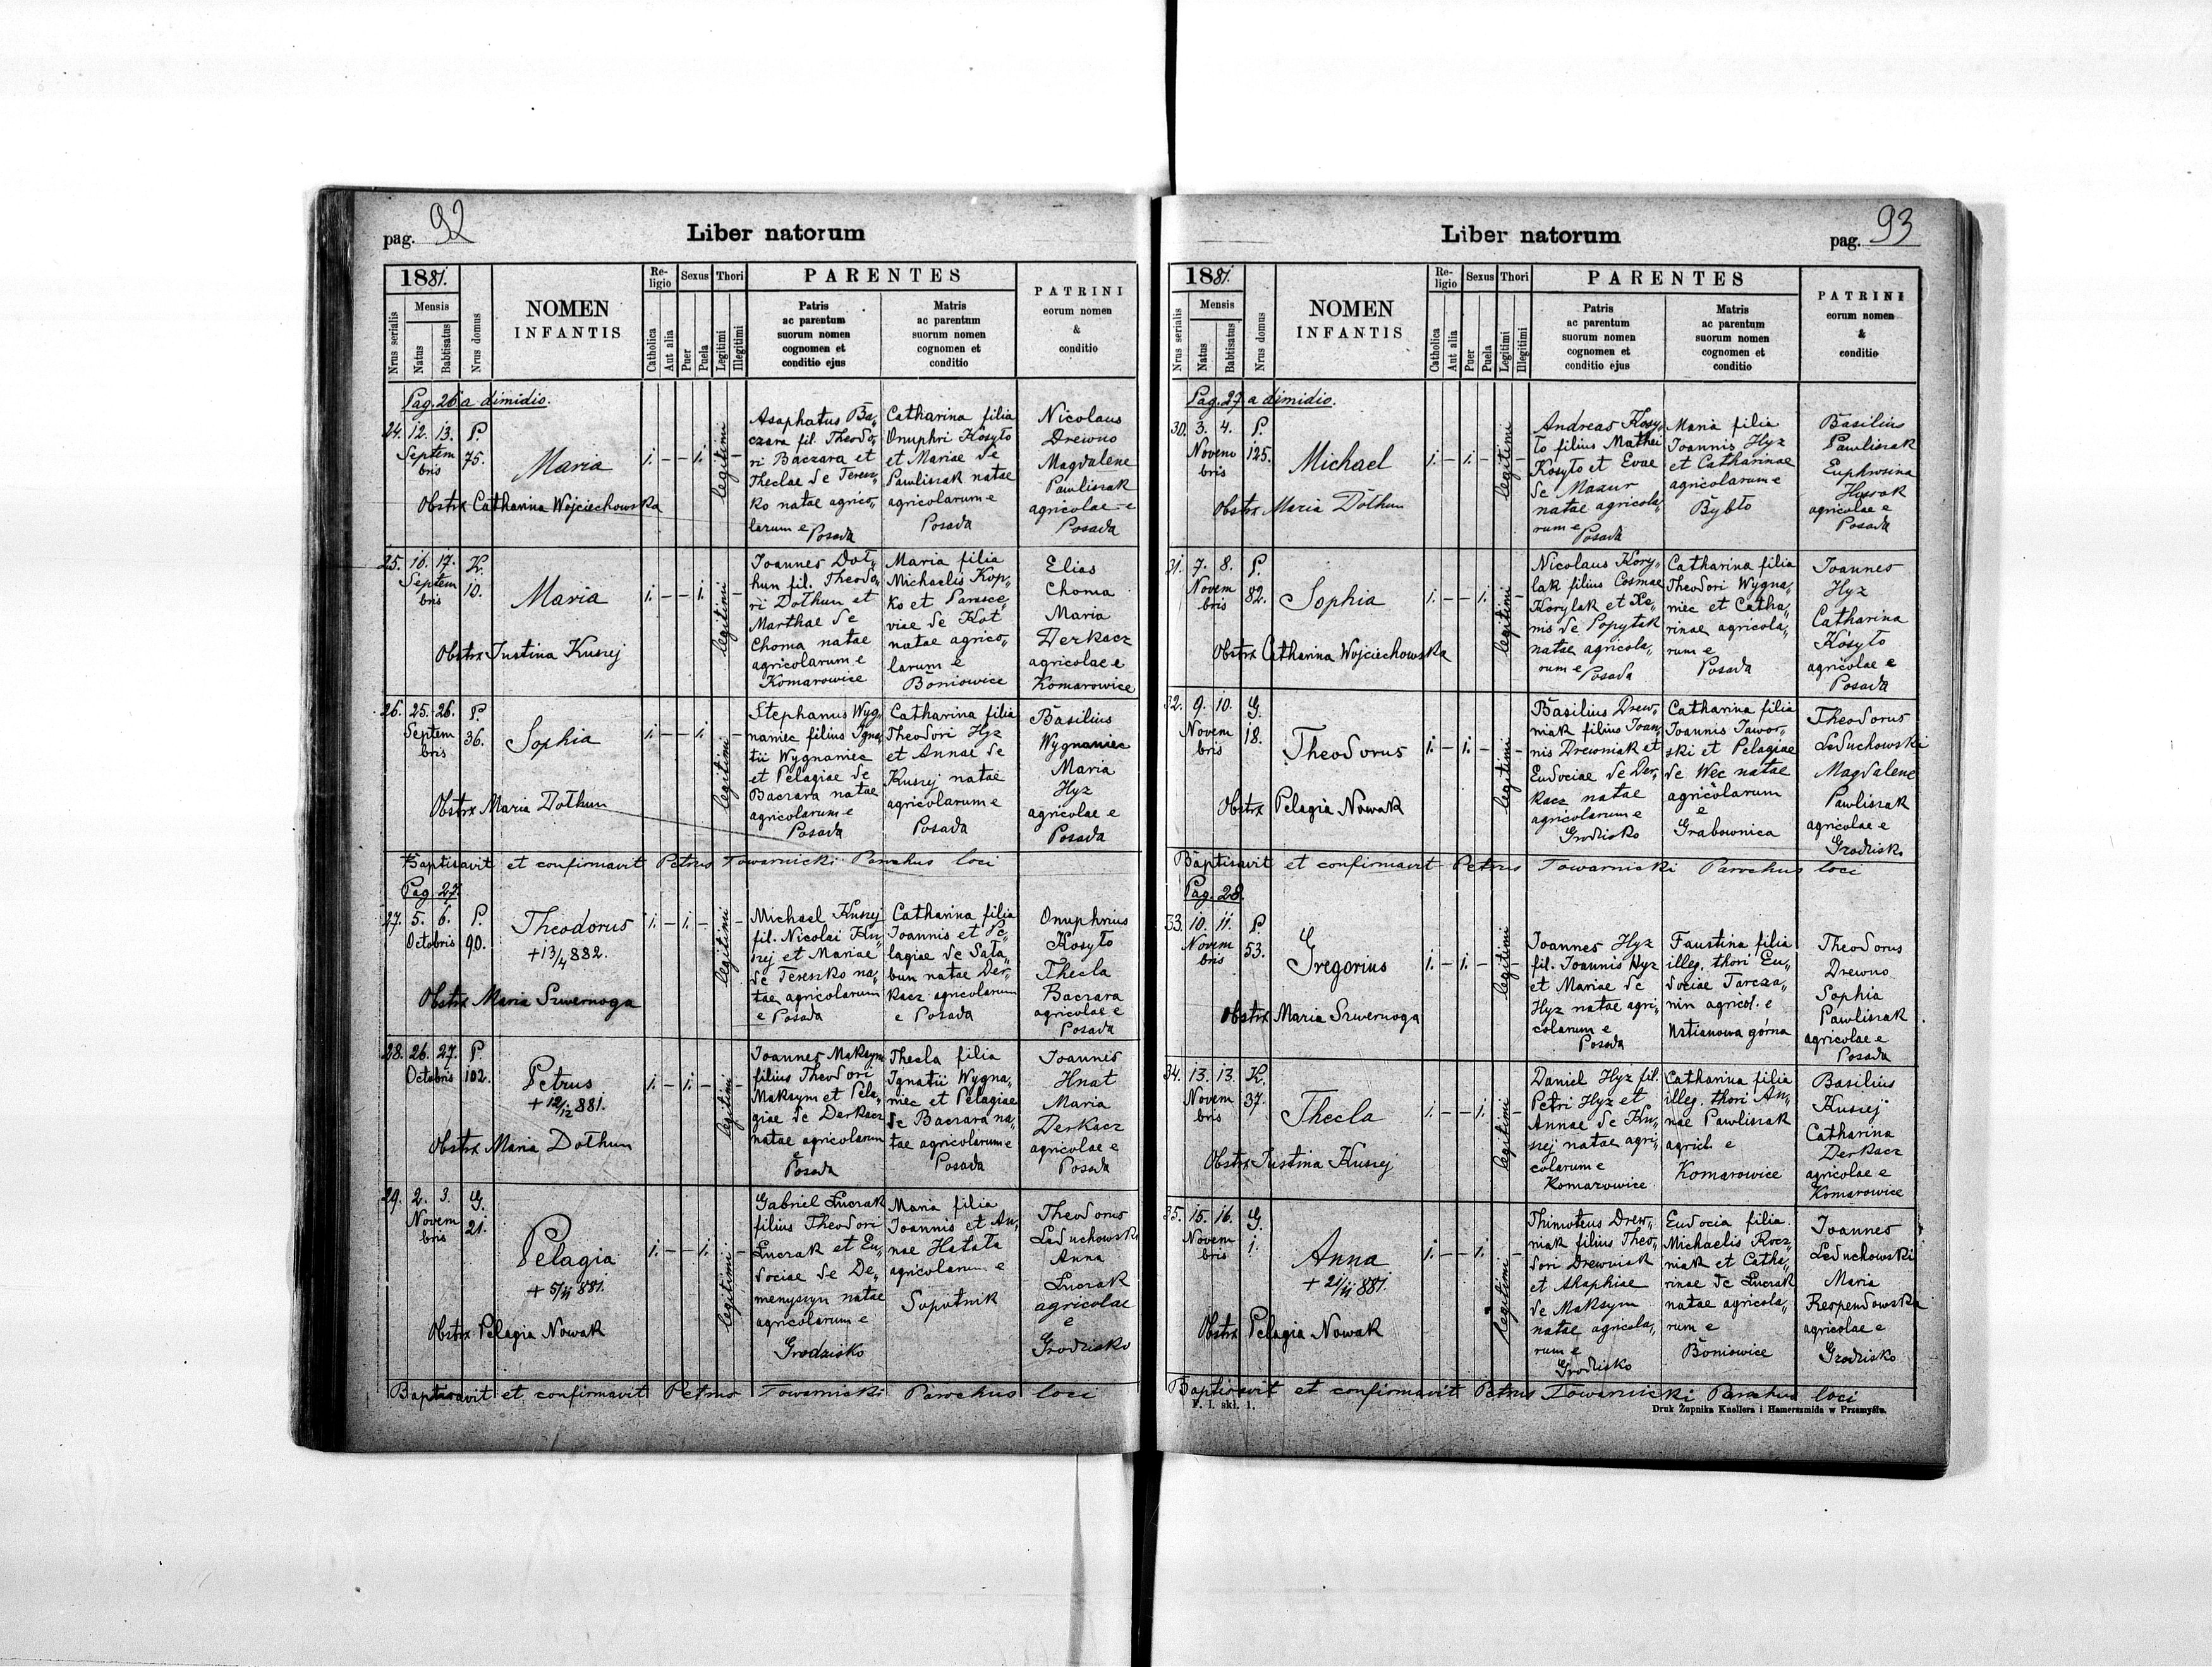 pag. 92
Liber natorum
1881.
Nrus serialis
Mensis
Natus
Babtisatus
Nrus domus
NOMEN
INFANTIS
Re-
ligio
Catholica
Aut alia
Sexus
Puer
Puela
Thori
Legitimi
Illegitimi
PARENTES
Patris
ac parentum
suorum nomen
cognomen et
conditio ejus
Matris
ac parentum
suorum nomen
cognomen et
conditio
PATRINI
eorum nomen
&
conditio
Pag. 26 a dimidio.
24. 12. 13. P.
Septem
bris
75.
Maria
1. – – 1. legitimi –
Asaphatus Ba„
czara fil. Theodo„
ri Baczara et
Theclae de Teresz„
ko natae agrico„
larum e
Posada
Catharina filia
Onuphri Kosyło
et Mariae de
Pawliszak natae
agricolarum e
Posada
Nicolaus
Drewno
Magdalene
Pawliszak
agricolae e
Posada
Obstrx Catharina Wojciechowska
25. 16. 17. K.
Septem
bris
10.
Maria
1. – – 1. legitimi –
Joannes Doł„
hun fil. Theodo„
ri Dołhun et
Marthae de
Choma natae
agricolarum e
Komarowice
Maria filia
Michaelis Kop„
ko et Parasce„
viae de Kot
natae agrico„
larum e
Boniowice
Elias
Choma
Maria
Derkacz
agricolae e
Komarowice
Obstrx Justina Kuszej
26. 25. 26. P.
Septem
bris
36.
Sophia
1. – – 1. legitimi –
Stephanus Wyg„
naniec filius Igna„
tii Wygnaniec
et Pelagiae de
Baczara natae
agricolarum e
Posada
Catharina filia
Theodori Hyz
et Annae de
Kuszej natae
agricolarum e
Posada
Basilius
Wygnaniec
Maria
Hyz
agricolae e
Posada
Obstrx Maria Dołhun
Baptisavit et confirmavit Petrus Towarnicki Parochus loci
Pag. 27.
27. 5. 6. P.
Octobris 90.
Theodorus
+ 13/4 882.
1. – 1. – legitimi –
Michael Kuszej
fil. Nicolai Ku„
szej et Mariae
de Tereszko na„
tae agricolarum
e Posada
Catharina filia
Joannis et Pe„
lagiae de Sała„
bun natae Der„
kacz agricolarum
e Posada
Onuphrius
Kosyło
Thecla
Baczara
agricolae e
Posada
Obstrx Maria Szwernoga
28. 26. 27. P.
Octobris 102.
Petrus
+ 12/12 881.
1. – 1. – legitimi –
Joannes Maksym
filius Theodori
Maksym et Pela„
giae de Derkacz
natae agricolarum
e
Posada
Thecla filia
Ignatii Wygna„
niec et Pelagiae
de Baczara na„
tae agricolarum e
Posada
Joannes
Hnat
Maria
Derkacz
agricolae e
Posada
Obstrx Maria Dołhun
29. 2. 3. G.
Novem
bris
21.
Pelagia
+ 5/11 881.
1. – – 1. legitimi –
Gabriel Łuczak
filius Theodori
Łuczak et Eu„
dociae de De„
menyszyn natae
agricolarum e
Grodzisko
Maria filia
Joannis et An„
nae Hałała
agricolarum e
Sopotnik
Theodorus
Leduchowski
Anna
Łuczak
agricolae
e
Grodzisko
Obstrx Pelagia Nowak
Baptisavit et confirmavit Petrus Towarnicki Parochus loci
Liber natorum
pag. 93
1881.
Nrus serialis
Mensis
Natus
Babtisatus
Nrus domus
NOMEN
INFANTIS
Re-
ligio
Catholica
Aut alia
Sexus
Puer
Puela
Thori
Legitimi
Illegitimi
PARENTES
Patris
ac parentum
suorum nomen
cognomen et
conditio ejus
Matris
ac parentum
suorum nomen
cognomen et
conditio
PATRINI
eorum nomen
&
conditio
Pag. 27 a dimidio.
30. 3. 4. P.
Novem
bris
125.
Michael
1. – 1. – legitimi –
Andreas Kosy„
ło filius Mathei
Kosyło et Evae
de Mazur
natae agricola„
rum e
Posada
Maria filia
Joannis Hyz
et Catharinae
agricolarum e
Bybło
Basilius
Pawliszak
Euphrosina
Husak
agricolae e
Posada
Obstrx Maria Dołhun
31. 7. 8. P.
Novem
bris
82.
Sophia
1. – – 1. legitimi –
Nicolaus Kory„
lak filius Cosmae
Korylak et Xe„
nis de Popytak
natae agricola„
rum e
Posada
Catharina filia
Theodori Wygna„
niec et Catha„
rinae agricola„
rum e
Posada
Joannes
Hyz
Catharina
Kosyło
agricolae e
Posada
Obstrx Catharina Wojciechowska
32. 9. 10. G.
Novem
bris
18.
Theodorus
1. – 1. – legitimi –
Basilius Drew„
niak filius Joan„
nis Drewniak et
Eudociae de Der„
kacz natae
agricolarum e
Grodzisko
Catharina filia
Joannis Jawor„
ski et Pelagiae
de Wec natae
agricolarum
e
Grabownica
Theodorus
Leduchowski
Magdalene
Pawliszak
agricolae e
Grodzisko
Obstrx Pelagia Nowak
Baptisavit et confirmavit Petrus Towarnicki Parochus loci
Pag. 28.
33. 10. 11. P
Novem
bris
53.
Gregorius
1. – 1. – legitimi –
Joannes Hyz
fil. Joannis Hyz
et Mariae de
Hyz natae agri„
colarum e
Posada
Faustina filia
illeg. thori Eu„
dociae Tarcza„
nin agricol. e
Ustianowa górna
Theodorus
Drewno
Sophia
Pawliszak
agricolae e
Posada
Obstrx Maria Szwernoga
34. 13. 13. K.
Novem
bris
37.
Thecla
1. – – 1. legitimi –
Daniel Hyz fil.
Petri Hyz et
Annae de Ku„
szej natae agri„
colarum e
Komarowice
Catharina filia
illeg. thori An„
nae Pawliszak
agricl. e
Komarowice
Basilius
Kusiej
Catharina
Derkacz
agricolae e
Komarowice
Obstrx Justina Kuszej
35. 15. 16. G.
Novem
bris
1.
Anna
+ 21/11 881.
1. – – 1. legitimi –
Thimoteus Drew„
niak filius Theo„
dori Drewniak
et Ahaphiae
de Maksym
natae agricola„
rum e
Grodzisko
Eudocia filia
Michaelis Rocz„
niak et Catha„
rinae de Łuczak
natae agricola„
rum e
Boniowice
Joannes
Leduchowski
Maria
Respendowska
agricolae e
Grodzisko
Obstrx Pelagia Nowak
Baptisavit et confirmavit Petrus Towarnicki Parochus loci
F. I. skł. 1.
Druk Żupnika Knollera i Hamerszmida w Przemyślu.